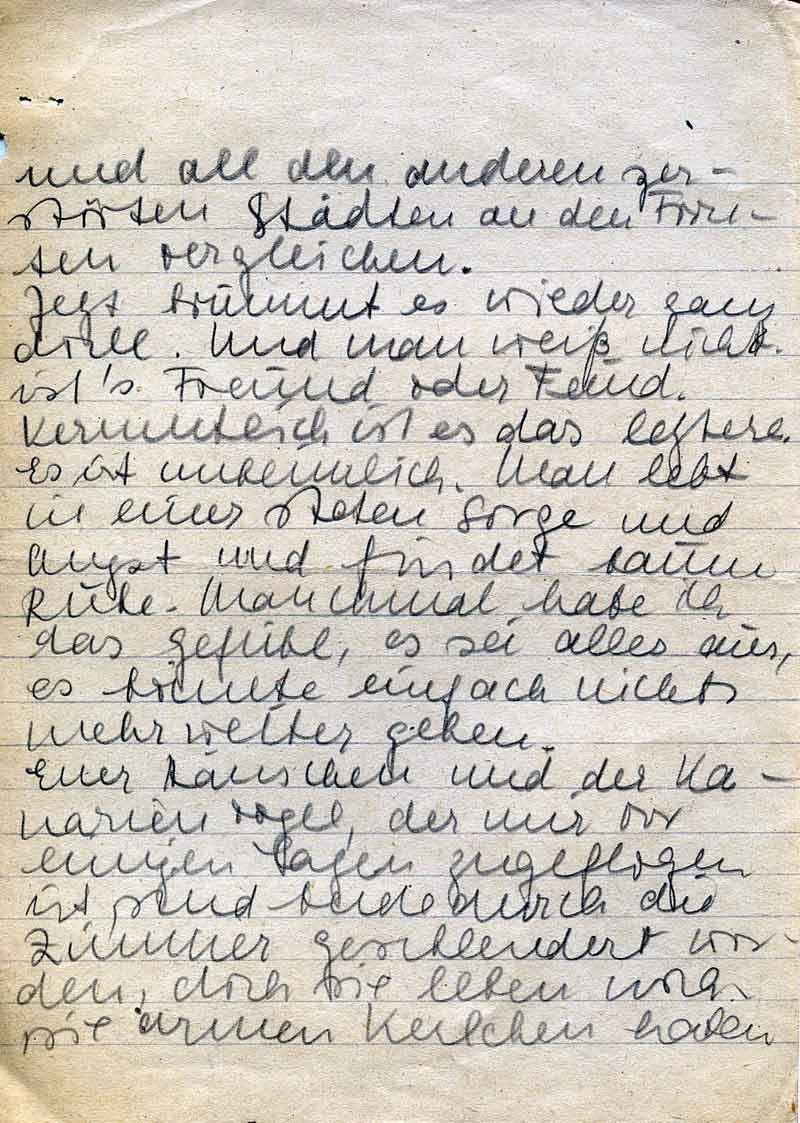 und all den anderen zer-
störten Städten an den Fron-
ten vergleichen.
Jetzt brummt es wieder ganz
doll. Und man weiß nicht.
ist's Freund oder Feind.
Vermutlich ist es das letztere.
Es ist unheimlich. Man lebt
in einer steten Sorge und
Angst und findet kaum
Ruhe. Manchmal habe ich
das Gefühl, es sei alles aus,
es könnte einfach nichts
mehr weiter gehen.
Euer Hänschen und der Ka-
narienvogel, der mir vor
einigen Tagen zugeflogen
ist sind beide durch die
Zimmer geschleudert wor-
den, doch sie leben noch.
Die armen Kerlchen haben